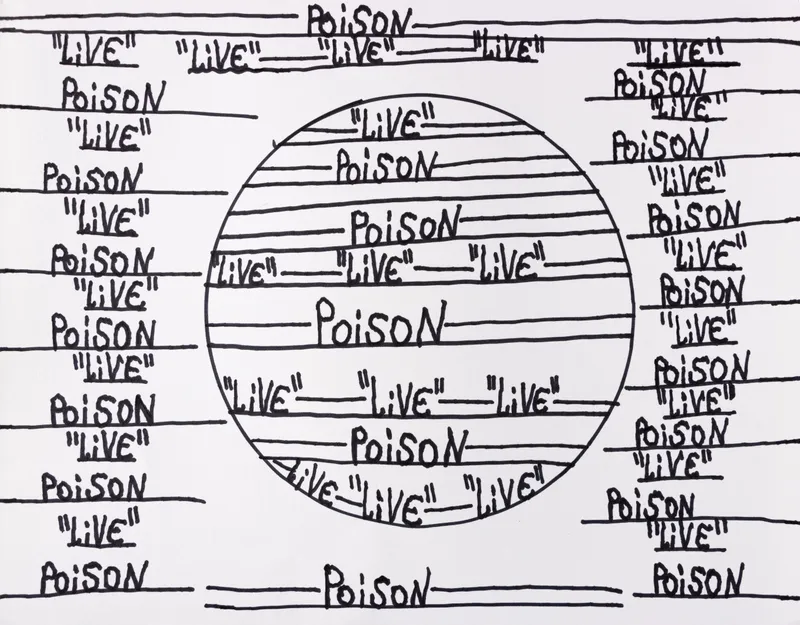 POiSON
"LiVE" "LiVE" "LiVE" "LiVE" "LiVE"
POiSON
"LiVE"
POiSON
"LiVE"
POiSON
"LiVE"
POiSON
"LiVE"
POiSON
"LiVE"
POiSON
"LiVE"
POiSON
"LiVE"
POiSON
POiSON
"LiVE" "LiVE" "LiVE"
POiSON
"LiVE" "LiVE" "LiVE"
POiSON
"LiVE" "LiVE" "LiVE"
POiSON
POiSON
"LiVE"
POiSON
"LiVE"
POiSON
"LiVE"
POiSON
"LiVE"
POiSON
"LiVE"
POiSON
"LiVE"
POiSON
"LiVE"
POiSON